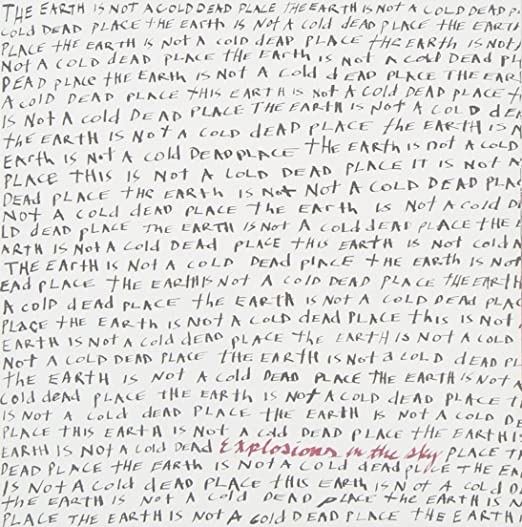 THE EARTH IS NOT A COLD DEAD PLACE THE EARTH IS NOT A COLD DEAD P
COLD DEAD PLACE THE EARTH IS NOT A COLD DEAD PLACE THE EARTH
PLACE THE EARTH IS NOT A COLD DEAD PLACE THE EARTH IS NOT
NOT A COLD DEAD PLACE THE EARTH IS NOT A COLD DEAD PL
DEAD PLACE THE EARTH IS NOT A COLD DEAD PLACE THE EAR
A COLD DEAD PLACE THIS EARTH IS NOT A COLD DEAD PLACE T
IS NOT A COLD DEAD PLACE THE EARTH IS NOT A COLD DE
THE EARTH IS NOT A COLD DEAD PLACE THE EARTH IS N
EARTH IS NOT A COLD DEAD PLACE THE EARTH IS NOT A COLD
PLACE THIS IS NOT A COLD DEAD PLACE IT IS NOT A
DEAD PLACE THE EARTH IS NOT NOT A COLD DEAD PLAC
NOT A COLD DEAD PLACE THE EARTH IS NOT A COLD D
LD DEAD PLACE THE EARTH IS NOT A COLD DEAD PLACE THE
ARTH IS NOT A COLD DEAD PLACE THIS EARTH IS NOT COLD A
THE EARTH IS NOT A COLD DEAD PLACE THE EARTH IS NOT
EAD PLACE THE EARTH IS NOT A COLD DEAD PLACE THE EARTH
A COLD DEAD PLACE THE EARTH IS NOT A COLD DEAD PLAC
PLACE THE EARTH IS NOT A COLD DEAD PLACE THIS IS NOT
EARTH IS NOT A COLD DEAD PLACE THE EARTH IS NOT A COLD
NOT A COLD DEAD PLACE THE EARTH IS NOT A COLD DEAD PL
THE EARTH IS NOT A COLD DEAD PLACE THE EARTH IS NOT A
COLD DEAD PLACE THE EARTH IS NOT A COLD DEAD PLACE T
IS NOT A COLD DEAD PLACE THE EARTH IS NOT A COLD DE
PLACE THIS EARTH IS NOT A COLD DEAD PLACE THE EARTH IS
EARTH IS NOT A COLD DEAD Explosions in the sky PLACE T
DEAD PLACE THE EARTH IS NOT A COLD DEAD PLACE THE EA
IS NOT A COLD DEAD PLACE THIS EARTH IS NOT A COLD D
THE EARTH IS NOT A COLD DEAD PLACE THE EARTH IS N
PLACE THE EARTH IS NOT A COLD DEAD PLACE THE EARTH